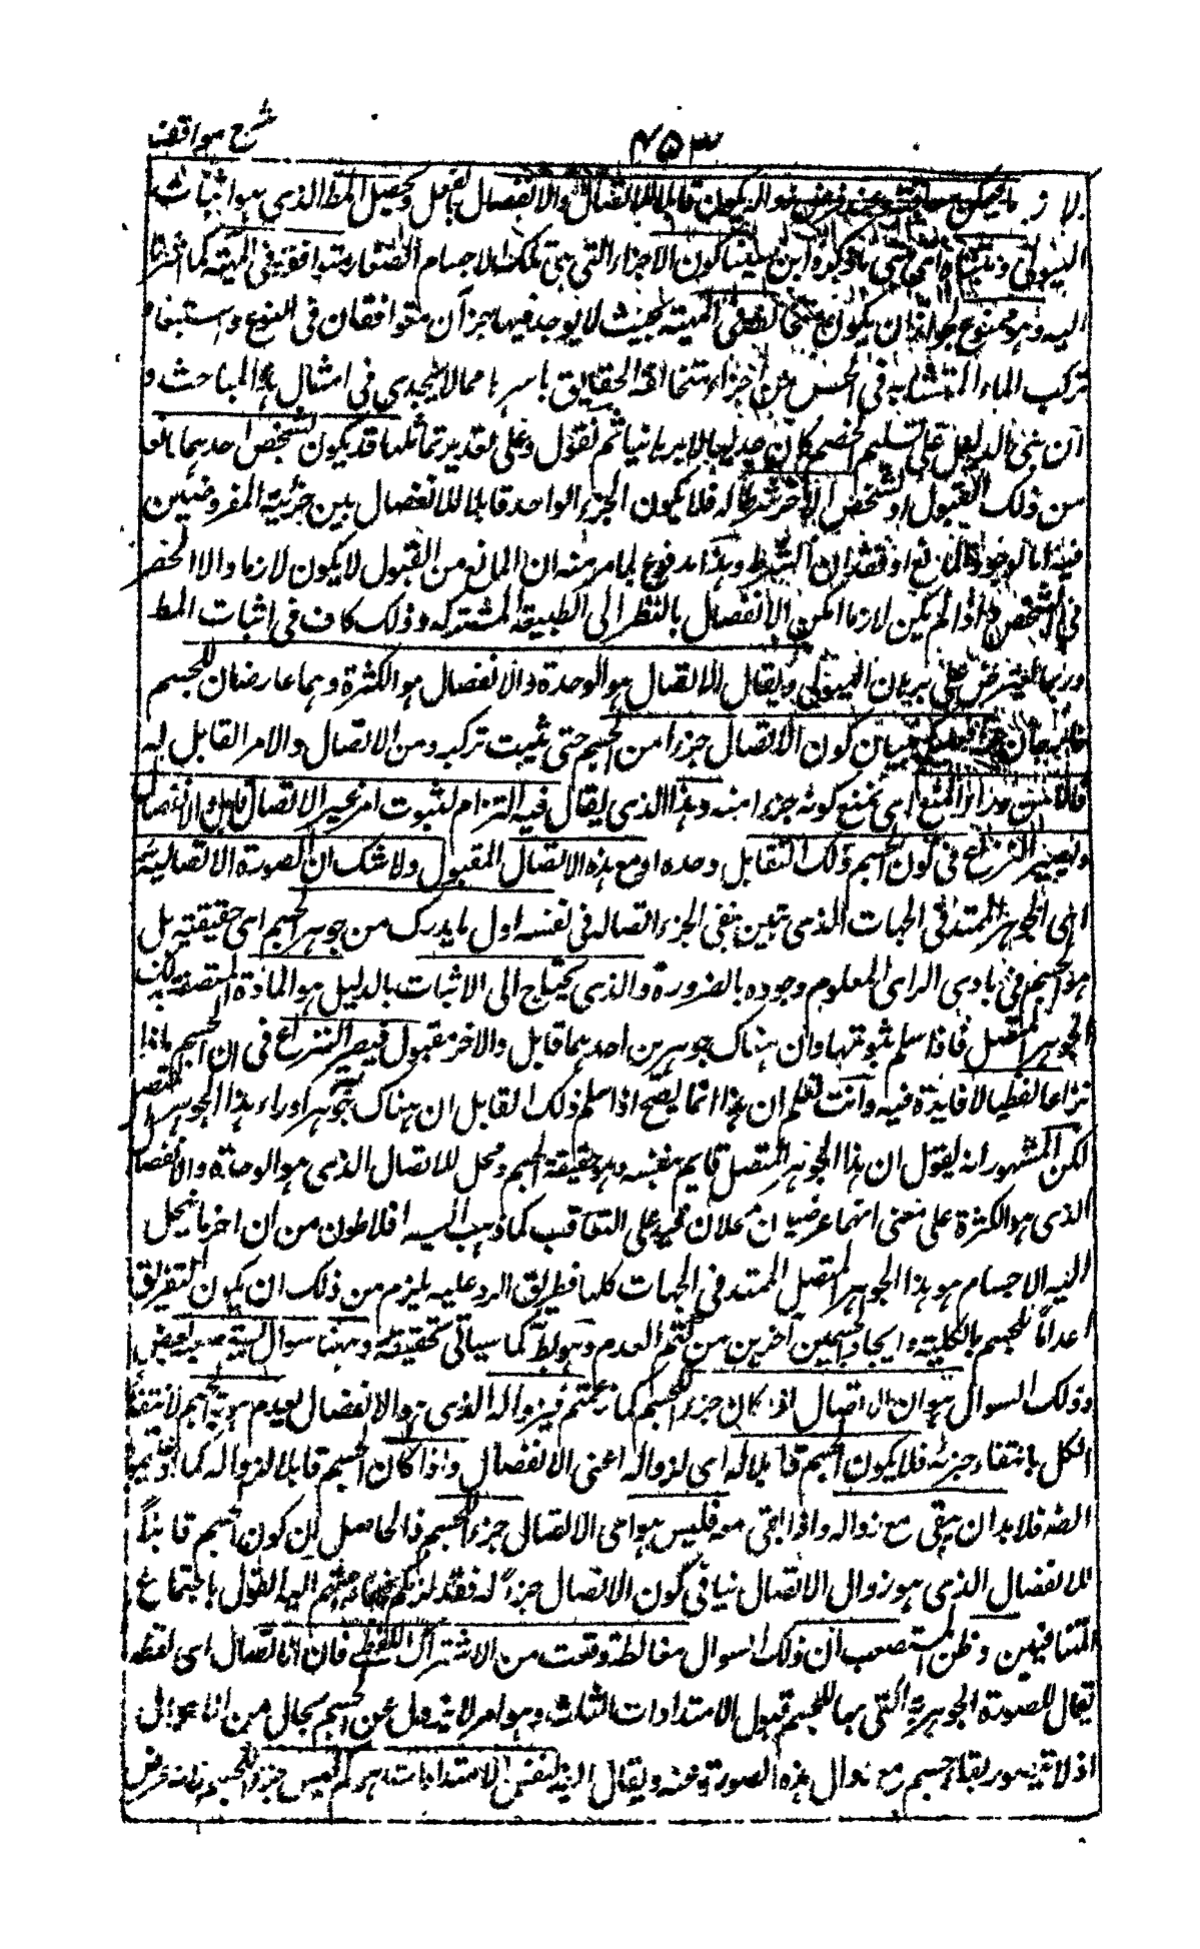 شرح مواقف
۴۵۳
لازما يمكن زواله يكون قابلا للاتصال والانفصال بالفعل ويحصل المط الذى هو اثبات
الهيولى كون الاجزاء التى هى تلك الاجسام الصغار متوافقة فى المهية كما اشرنا
اليه وهو ممنوع لجواز ان يكون فى المهية بحيث لا يوجد فيها جزآن متوافقان فى النوع واستبعاد
تركب الماء المتشابه فى الحس من اجزاء متخالفة الحقايق باسرها مما لا يجدى فى امثال هذه المباحث و
ان بنى الدليل على تسليم الخصم كان جدليا لا برهانيا ثم نقول وعلى تقدير تماثلها قد يكون تشخص احدهما مانعا
من ذلك القبول او تشخص الآخر شرطا له فلا يكون الجزء الواحد قابلا للانفصال بين جزئيه المفروضين
فيه اما لوجود المانع او فقدان الشرط وهذا مدفوع لما مر منه ان المانع من القبول لا يكون لازما والا انحصر
فى الشخص واذا لم يكن لازما امكن الانفصال بالنظر الى الطبيعة المشتركه وذلك كاف فى اثبات المط
وربما يعترض على برهان الهيولى ويقال الاتصال هو الوحدة والانفصال هو الكثرة وهما عارضان للجسم
بيان كون الاتصال جزءا من الجسم حتى يثبت تركبه من الاتصال والامر القابل له
المنع اى بمنع كونه جزءا منه وهذا الذى يقال فيه التزام لثبوت امر غير الاتصال قابل والانفصال
ويصير النزاع فى كون الجسم ذلك القابل وحده او مع هذه الاتصال المقبول ولا شك ان الصورة الاتصالية
اى الجوهر الممتد فى الجهات الذى تبين بنفى الجزء اتصاله فى نفسه اول ما يدرك من جوهر الجسم اى حقيقته بل
هو الجسم فى بادى الراى المعلوم وجوده بالضرورة والذى يحتاج الى الاثبات بالدليل هو المادة المتصفة بذلك
الجوهر المتصل فاذا سلم ثبوتها وان هناك جوهرين احدهما قابل والآخر مقبول فيصر النزاع فى ان الجسم ماذا
نزاعا لفظيا لا فايدة فيه وانت تعلم ان هذا انما يصح اذا سلم ذلك القابل ان هناك جوهرا وراء هذا الجوهر المتصل
لكن المشهور انه يقول ان هذا الجوهر المتصل قايم بنفسه وهو حقيقة الجسم ومحل للاتصال الذى هو الوحدة والانفصال
الذى هو الكثرة على معنى انهما عرضيان على التعاقب كما ذهب اليه افلاطون من ان اخر ما ينحل
اليه الاجسام هو هذا الجوهر المتصل الممتد فى الجهات كلها فطريق الرد عليه يلزم من ذلك ان يكون التفريق
اعداما للجسم بالكلية وايجاد جسمين آخرين من كتم العدم وهو بط كما سياتى تحقيقه وههنا سوال
وذلك السوال هو ان الاتصال اذا كان جزء الجسم كما زعمتم فبزواله الذى هو الانفصال يعدم هوية الجسم لانتفاء
الكل بانتفاء جزئه فلا يكون الجسم قابلا له اى لزواله اعنى الانفصال واذا كان الجسم قابلا لزواله كما
فلا بد ان يبقى مع زواله واذا بقى معه فليس هو اى الاتصال جزء الجسم فالحاصل ان كون الجسم قابلا
للانفصال الذى هو زوال الاتصال ينافى كون الاتصال جزءً له فقد لزمكم القول باجتماع
المتنافيين وظن المستصعب ان ذلك السوال مغالطة وقعت من الاشتراك اللفظى فان الاتصال اى لفظه
يقال للصورة الجوهرية التى بها للجسم قبول الامتدادات الثلث وهو امر لا يزول عن الجسم بحال من الاحوال
اذ لا يتصور بقاء جسم مع زوال هذه الصورة عنه ويقال ايضا لنفس الامتدادات